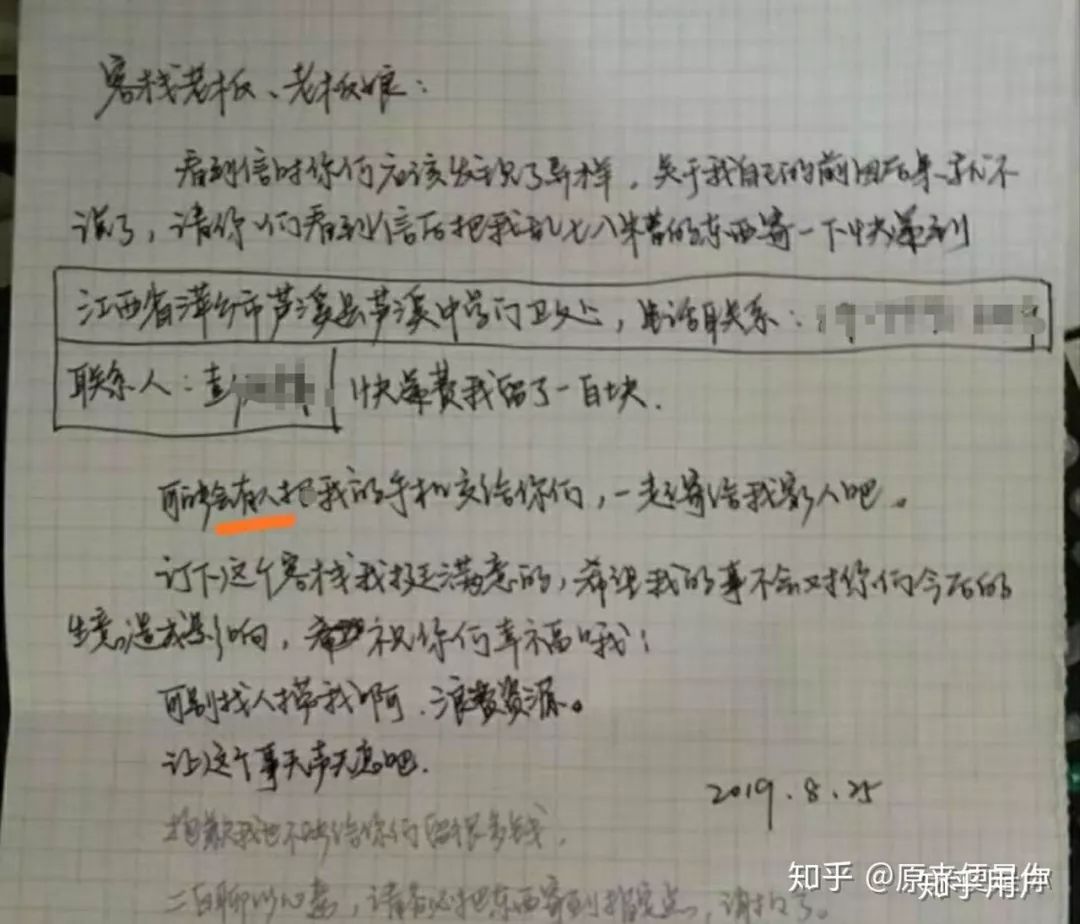 客栈老板、老板娘：
看到信时你们应该发现了异样，关于我自己的前因后果就不
说了，请你们看到信后把我乱七八糟的东西寄一下快递到
江西省萍乡市芦溪县芦溪中学门卫处，电话联系：
联系人：彭
快递费我留了一百块．
可能会有人把我的手机交给你们，一起寄给我家人吧。
订下这个客栈我挺满意的，希望我的事不会对你们今后的
生意造成影响，祝你们幸福哦！
可别找人捞我啊．浪费资源。
让这个事无声无息吧．
2019.8.25
抱歉我也不能给你们留很多钱．
二百聊以心意，请务必把东西寄到指定点，谢拉了。
知乎 @原来便是你
知乎用户